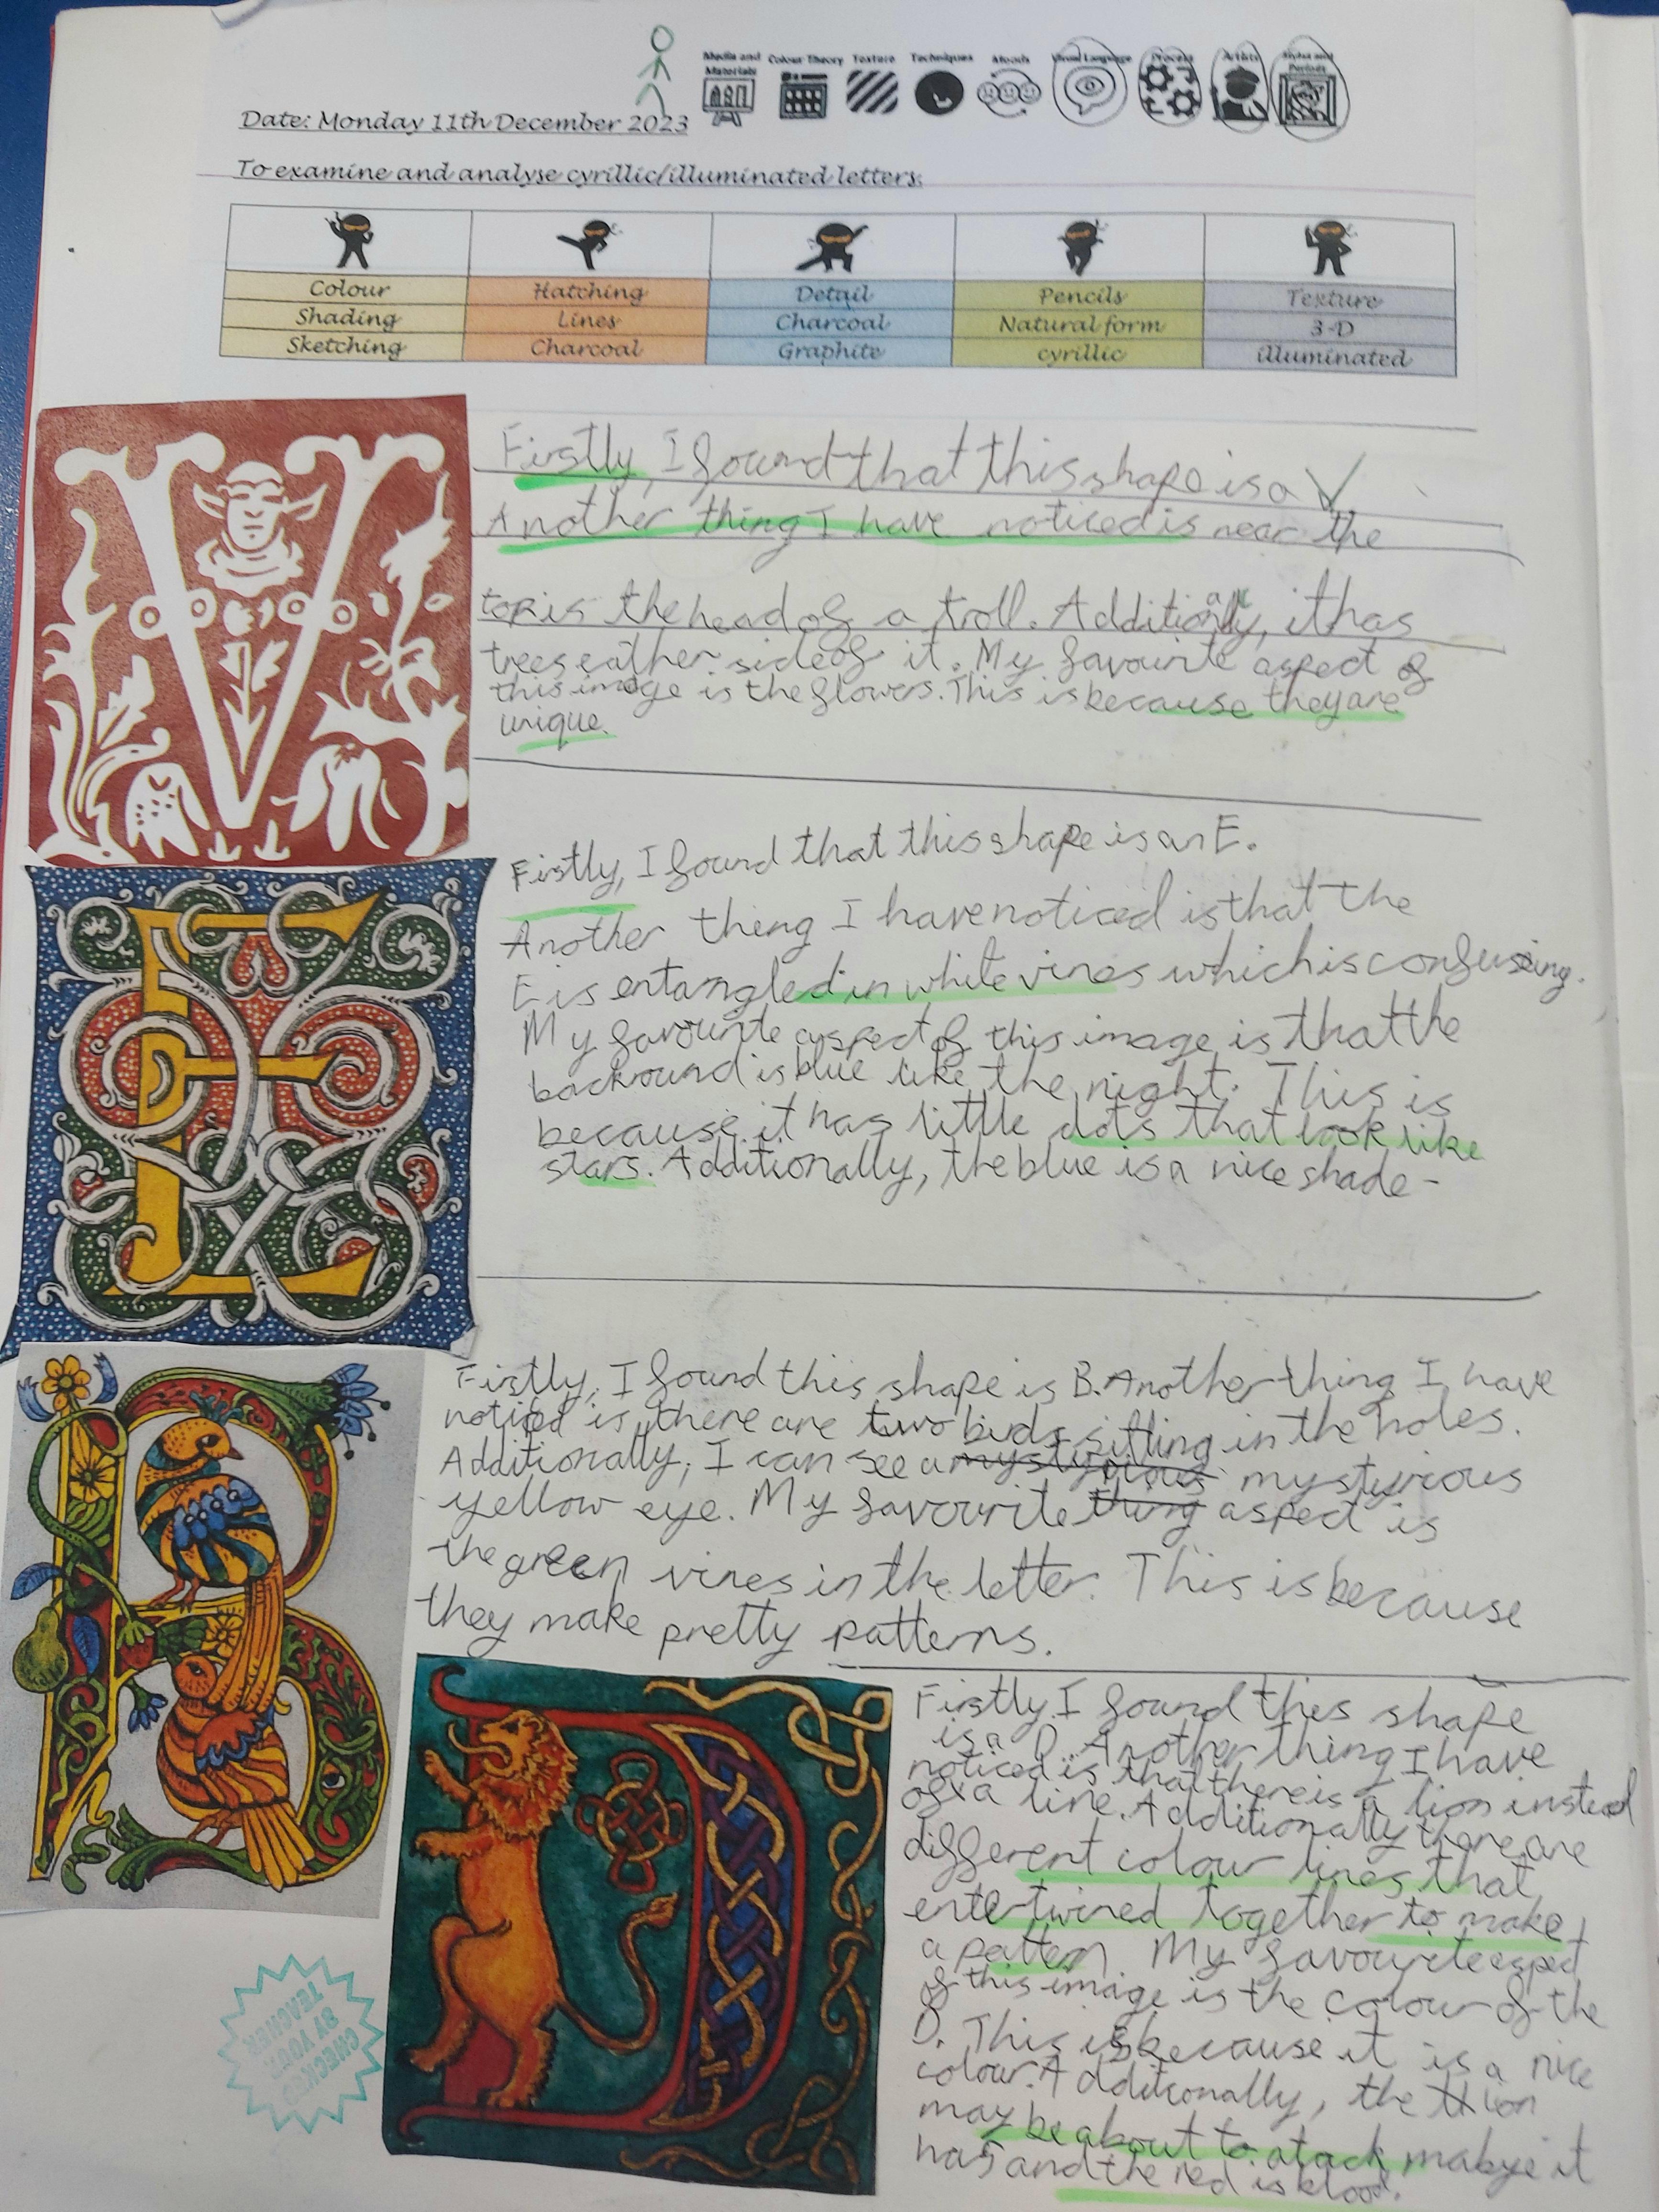 Media and Materials
Colour Theory
Texture
Techniques
Moods
Visual Language
Process
Artists
Styles and Periods
Date: Monday 11th December 2023
To examine and analyse cyrillic/illuminated letters.
Colour Hatching Detail Pencils Texture
Shading Lines Charcoal Natural form 3-D
Sketching Charcoal Graphite cyrillic illuminated
Firstly, I found that this shape is a V
Another thing I have noticed is near the
top is the head of a troll. Additionally, it has
trees eather side of it. My favourite aspect of
this image is the flowers. This is because they are
unique.
Firstly, I found that this shape is an E.
Another thing I have noticed is that the
E is entangled in white vines which is confusing.
My favourite aspect of this image is that the
backround is blue like the night. This is
because it has little dots that look like
stars. Additionally, the blue is a nice shade-
Firstly, I found this shape is B. Another thing I have
noticed is there are two birds sitting in the holes.
Additionally, I can see a mystyrious
yellow eye. My favourite thing aspect is
the green vines in the letter. This is because
they make pretty patterns.
Firstly I found thies shape
is a D. Another thing I have
noticed is that there is a lion instead
of a line. Additionally there are
different colour lines that
entertwined together to make
a pattern. My favourite aspect
of this image is the colour of the
D. This is because it is a nice
colour. Additionally, the lion
may be about to atack mabye it
has and the red is blood.
CHECKED
BY YOUR
TEACHER